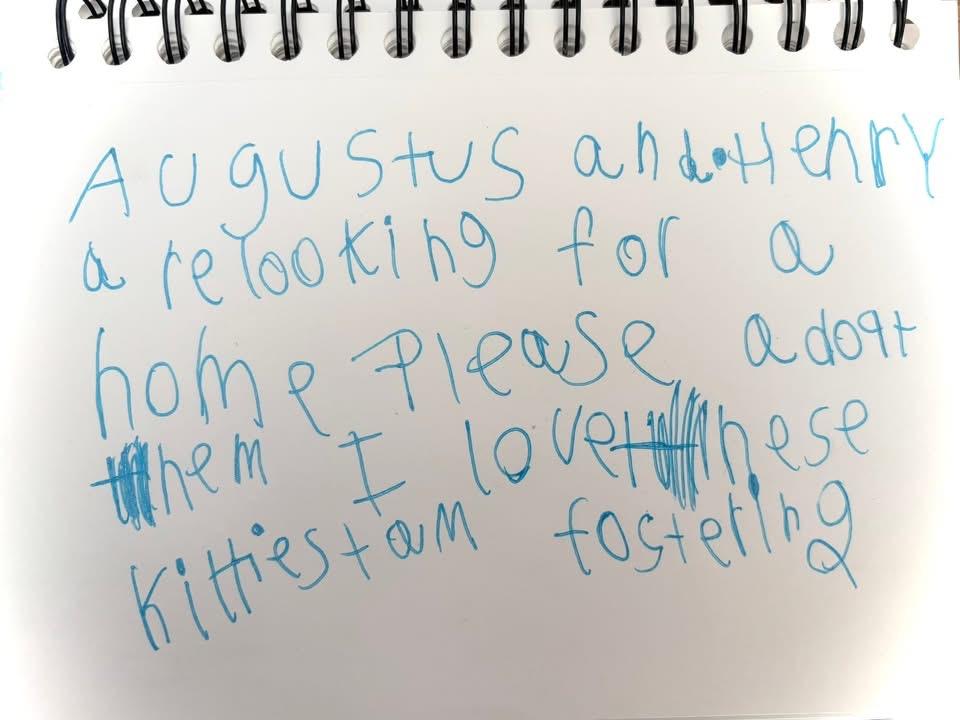 Augustus and Henry
a relooking for a
home Please adoqt
them I love these
Kitties tam fostering